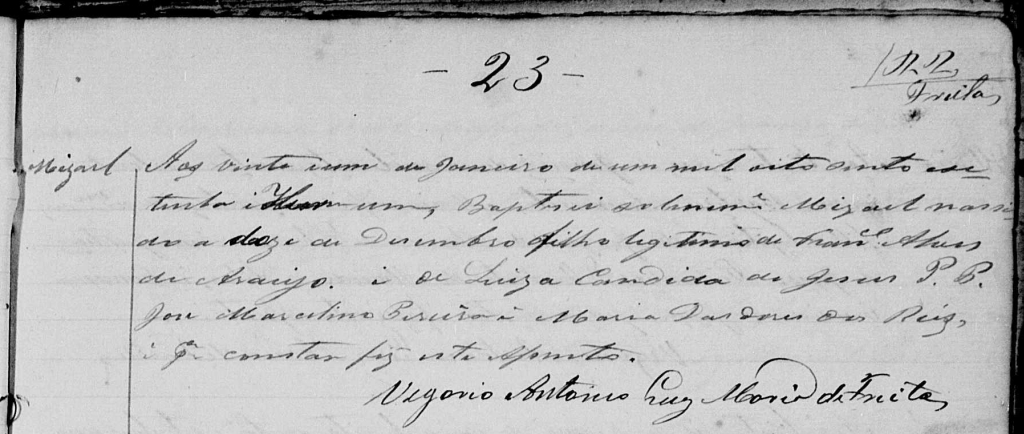 - 23 -
Freitas
Mizael
Aos vinte i um de Janeiro de um mil oito cento ese
tenta i um, Baptisei solenem.e Mizael nasci
do a doze de Desembro filho legitimo de Fran.co Alves
de Araujo. i de Luiza Candida de Jesus P. P.
Jose Marcelino Pereira i Maria das Dores dos Reis,
i q.e constar fiz este Apunto.
Vegario Antonio Luiz Maria de Freitas